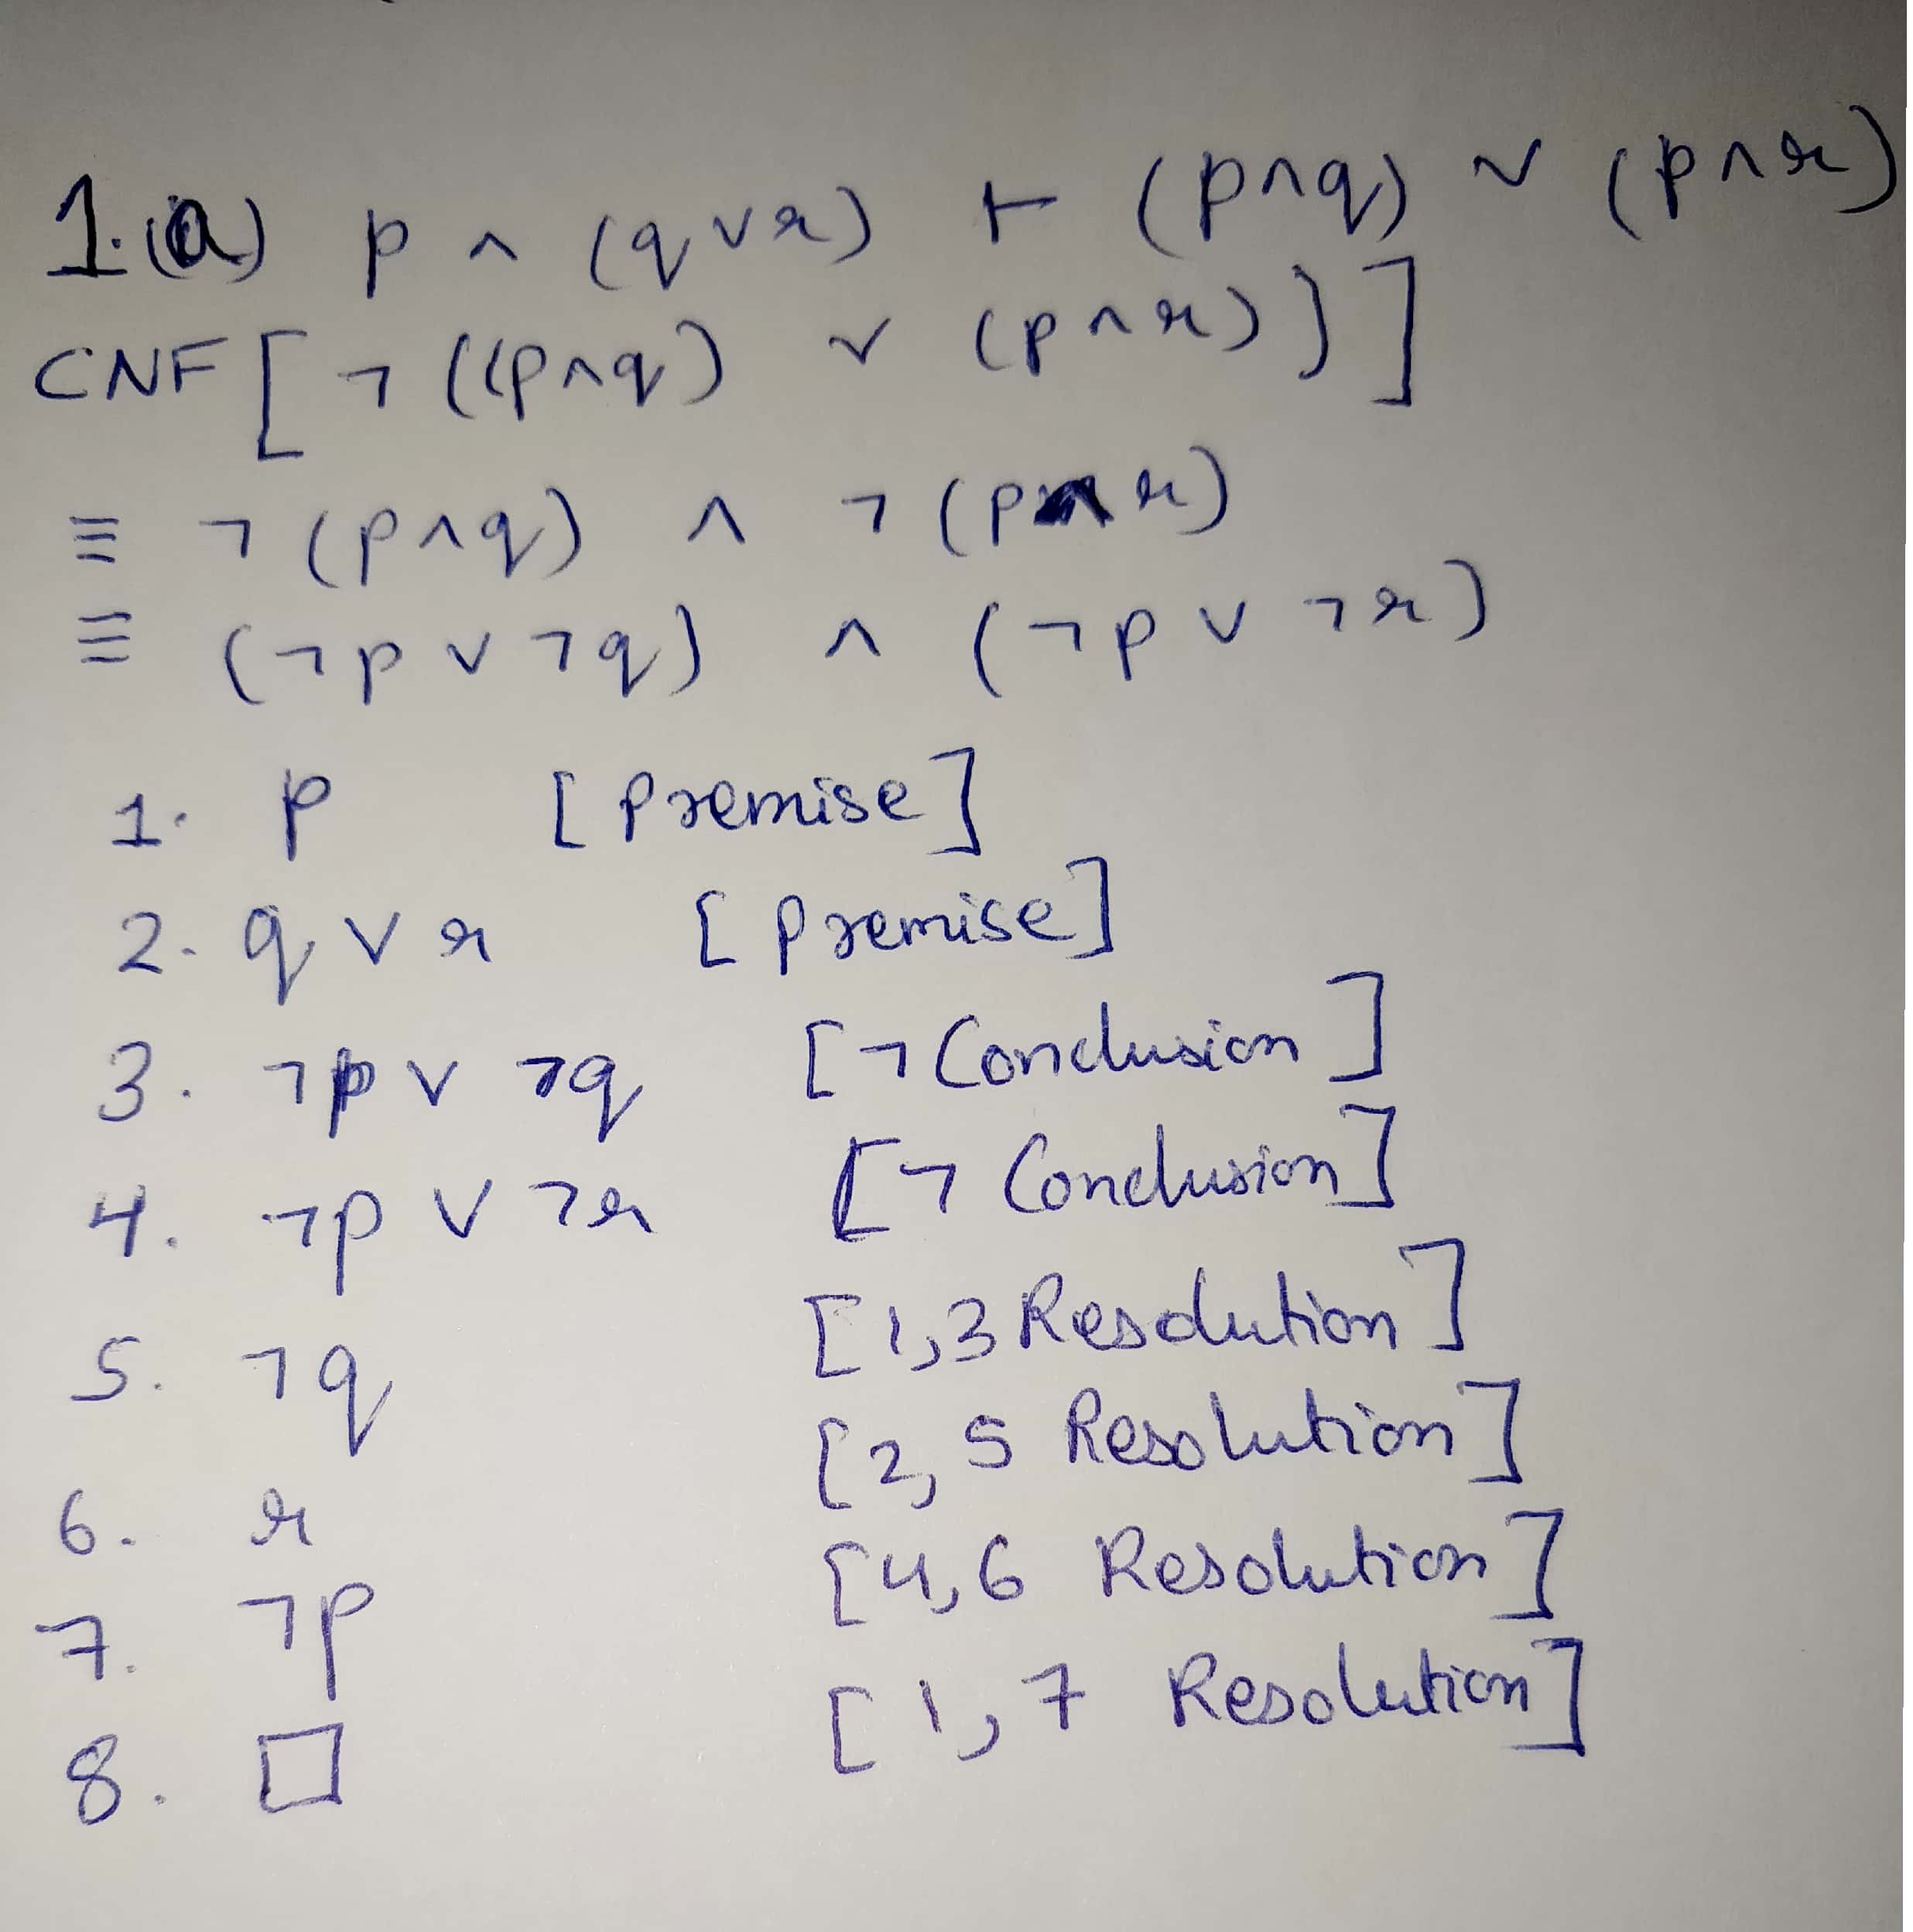 1.(a) p ∧ (q ∨ r) ⊢ (p ∧ q) ∨ (p ∧ r)
CNF [ ¬ ((p ∧ q) ∨ (p ∧ r)) ]
≡ ¬ (p ∧ q) ∧ ¬ (p ∧ r)
≡ (¬p ∨ ¬q) ∧ (¬p ∨ ¬r)
1. p [premise]
2. q ∨ r [premise]
3. ¬p ∨ ¬q [¬ Conclusion]
4. ¬p ∨ ¬r [¬ Conclusion]
5. ¬q [1,3 Resolution]
6. r [2, 5 Resolution]
7. ¬p [4,6 Resolution]
8. □ [1,7 Resolution]